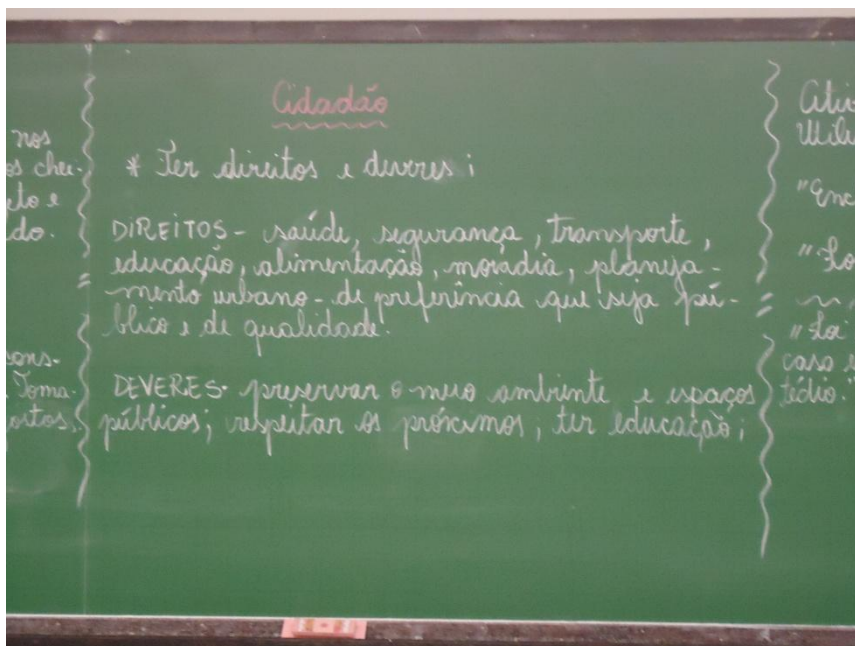 nos
os chei-
eto e
do.
=
cons-
Toma-
ostos.
Cidadão
* Ter direitos e deveres;
DIREITOS - saúde, segurança, transporte,
educação, alimentação, moradia, planeja-
mento urbano - de preferência que seja pú-
blico e de qualidade.
DEVERES - preservar o meio ambiente e espaços
públicos; respeitar os próximos; ter educação;
=
"Enc
"Lo
"Loi
caso e
tédio."